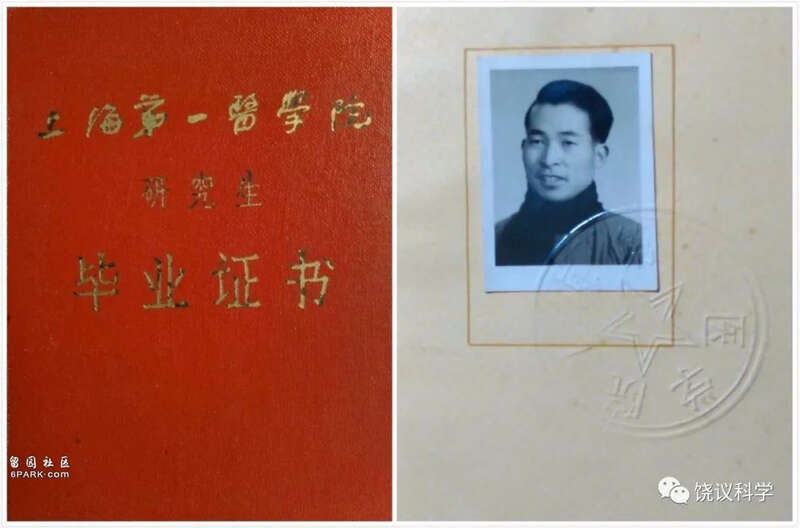 上海第一醫學院
研究生
毕业证书
留园社区
6PARK.com
医学院
饶议科学